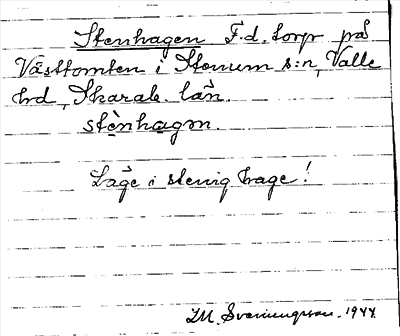 Stenhagen F.d. torp på
Västtomten i Stenum s:n, Valle
hd, Skarab. län.
stènhagən.
Läge i stenig hage!
I.M. Svenungsson. 1944